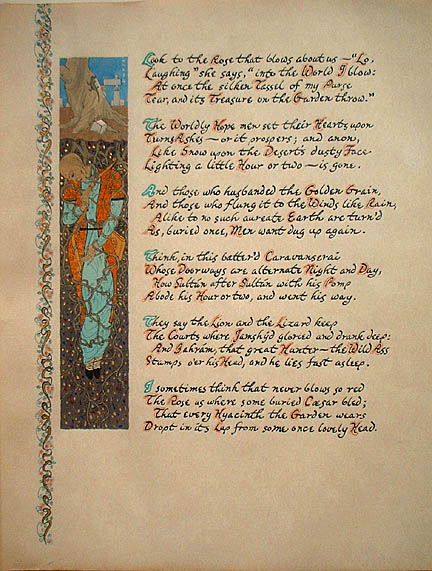 Look to the Rose that blows about us — "Lo,
Laughing" she says, "into the World I blow:
At once the silken Tassel of my Purse
Tear, and its Treasure on the Garden throw."
The Worldly Hope men set their Hearts upon
Turns Ashes — or it prospers; and anon,
Like Snow upon the Desert's dusty Face
Lighting a little Hour or two — is gone.
And those who husbanded the Golden Grain,
And those who flung it to the Winds like Rain,
Alike to no such aureate Earth are turn'd
As, buried once, Men want dug up again.
Think, in this batter'd Caravanserai
Whose Doorways are alternate Night and Day,
How Sultán after Sultán with his Pomp
Abode his Hour or two, and went his way.
They say the Lion and the Lizard keep
The Courts where Jamshýd gloried and drank deep:
And Bahrám, that great Hunter — the Wild Ass
Stamps o'er his Head, and he lies fast asleep.
I sometimes think that never blows so red
The Rose as where some buried Cæsar bled;
That every Hyacinth the Garden wears
Dropt in its Lap from some once lovely Head.